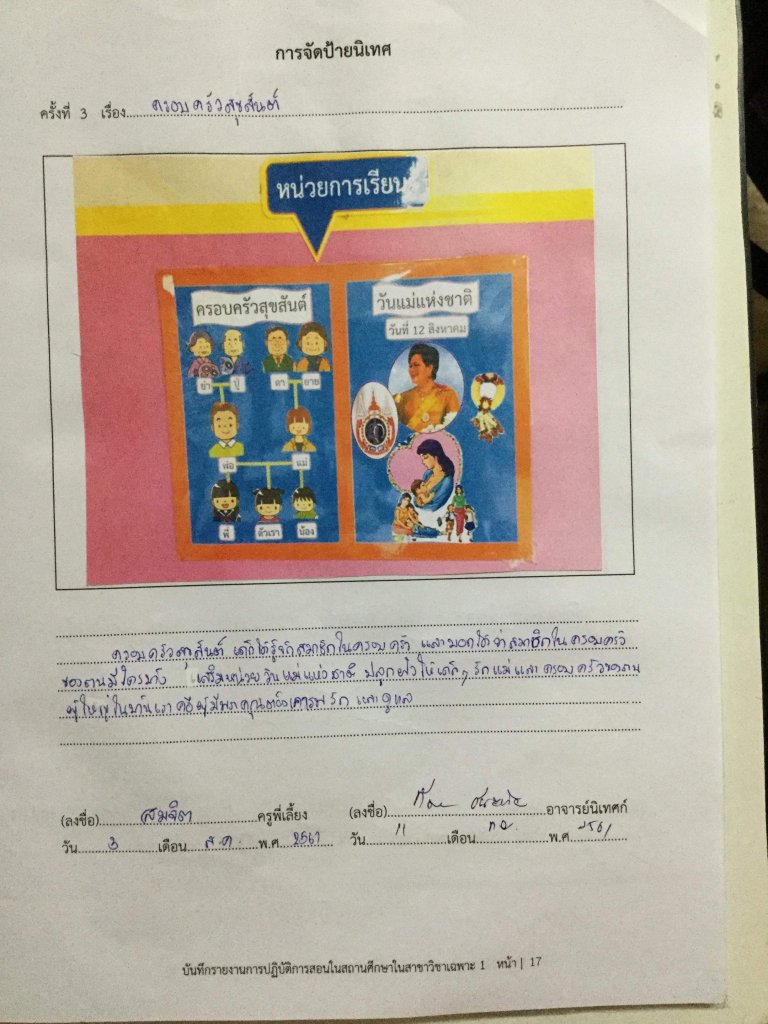 การจัดป้ายนิเทศ
ครั้งที่ 3 เรื่อง ครอบครัวสุขสันต์
หน่วยการเรียน
ครอบครัวสุขสันต์
ย่า ปู่ ตา ยาย
พ่อ แม่
พี่ ตัวเรา น้อง
วันแม่แห่งชาติ
วันที่ 12 สิงหาคม
ครอบครัวสุขสันต์ เด็กได้รู้จักสมาชิกในครอบครัว และบอกได้ว่าสมาชิกในครอบครัว
ของตนมีใครบ้าง เสริมหน่วยวันแม่แห่งชาติ ปลูกฝังให้เด็กๆ รักแม่และครอบครัวของตน
ผู้ใหญ่ในบ้านเราคือผู้มีพระคุณต้องเคารพ รัก และดูแล
(ลงชื่อ) สมจิต ครูพี่เลี้ยง
วัน 3 เดือน ส.ค. พ.ศ. 2561
(ลงชื่อ) อาจารย์นิเทศก์
วัน 11 เดือน พ.ศ. 2561
บันทึกรายงานการปฏิบัติการสอนในสถานศึกษาในสาขาวิชาเฉพาะ 1 หน้า | 17